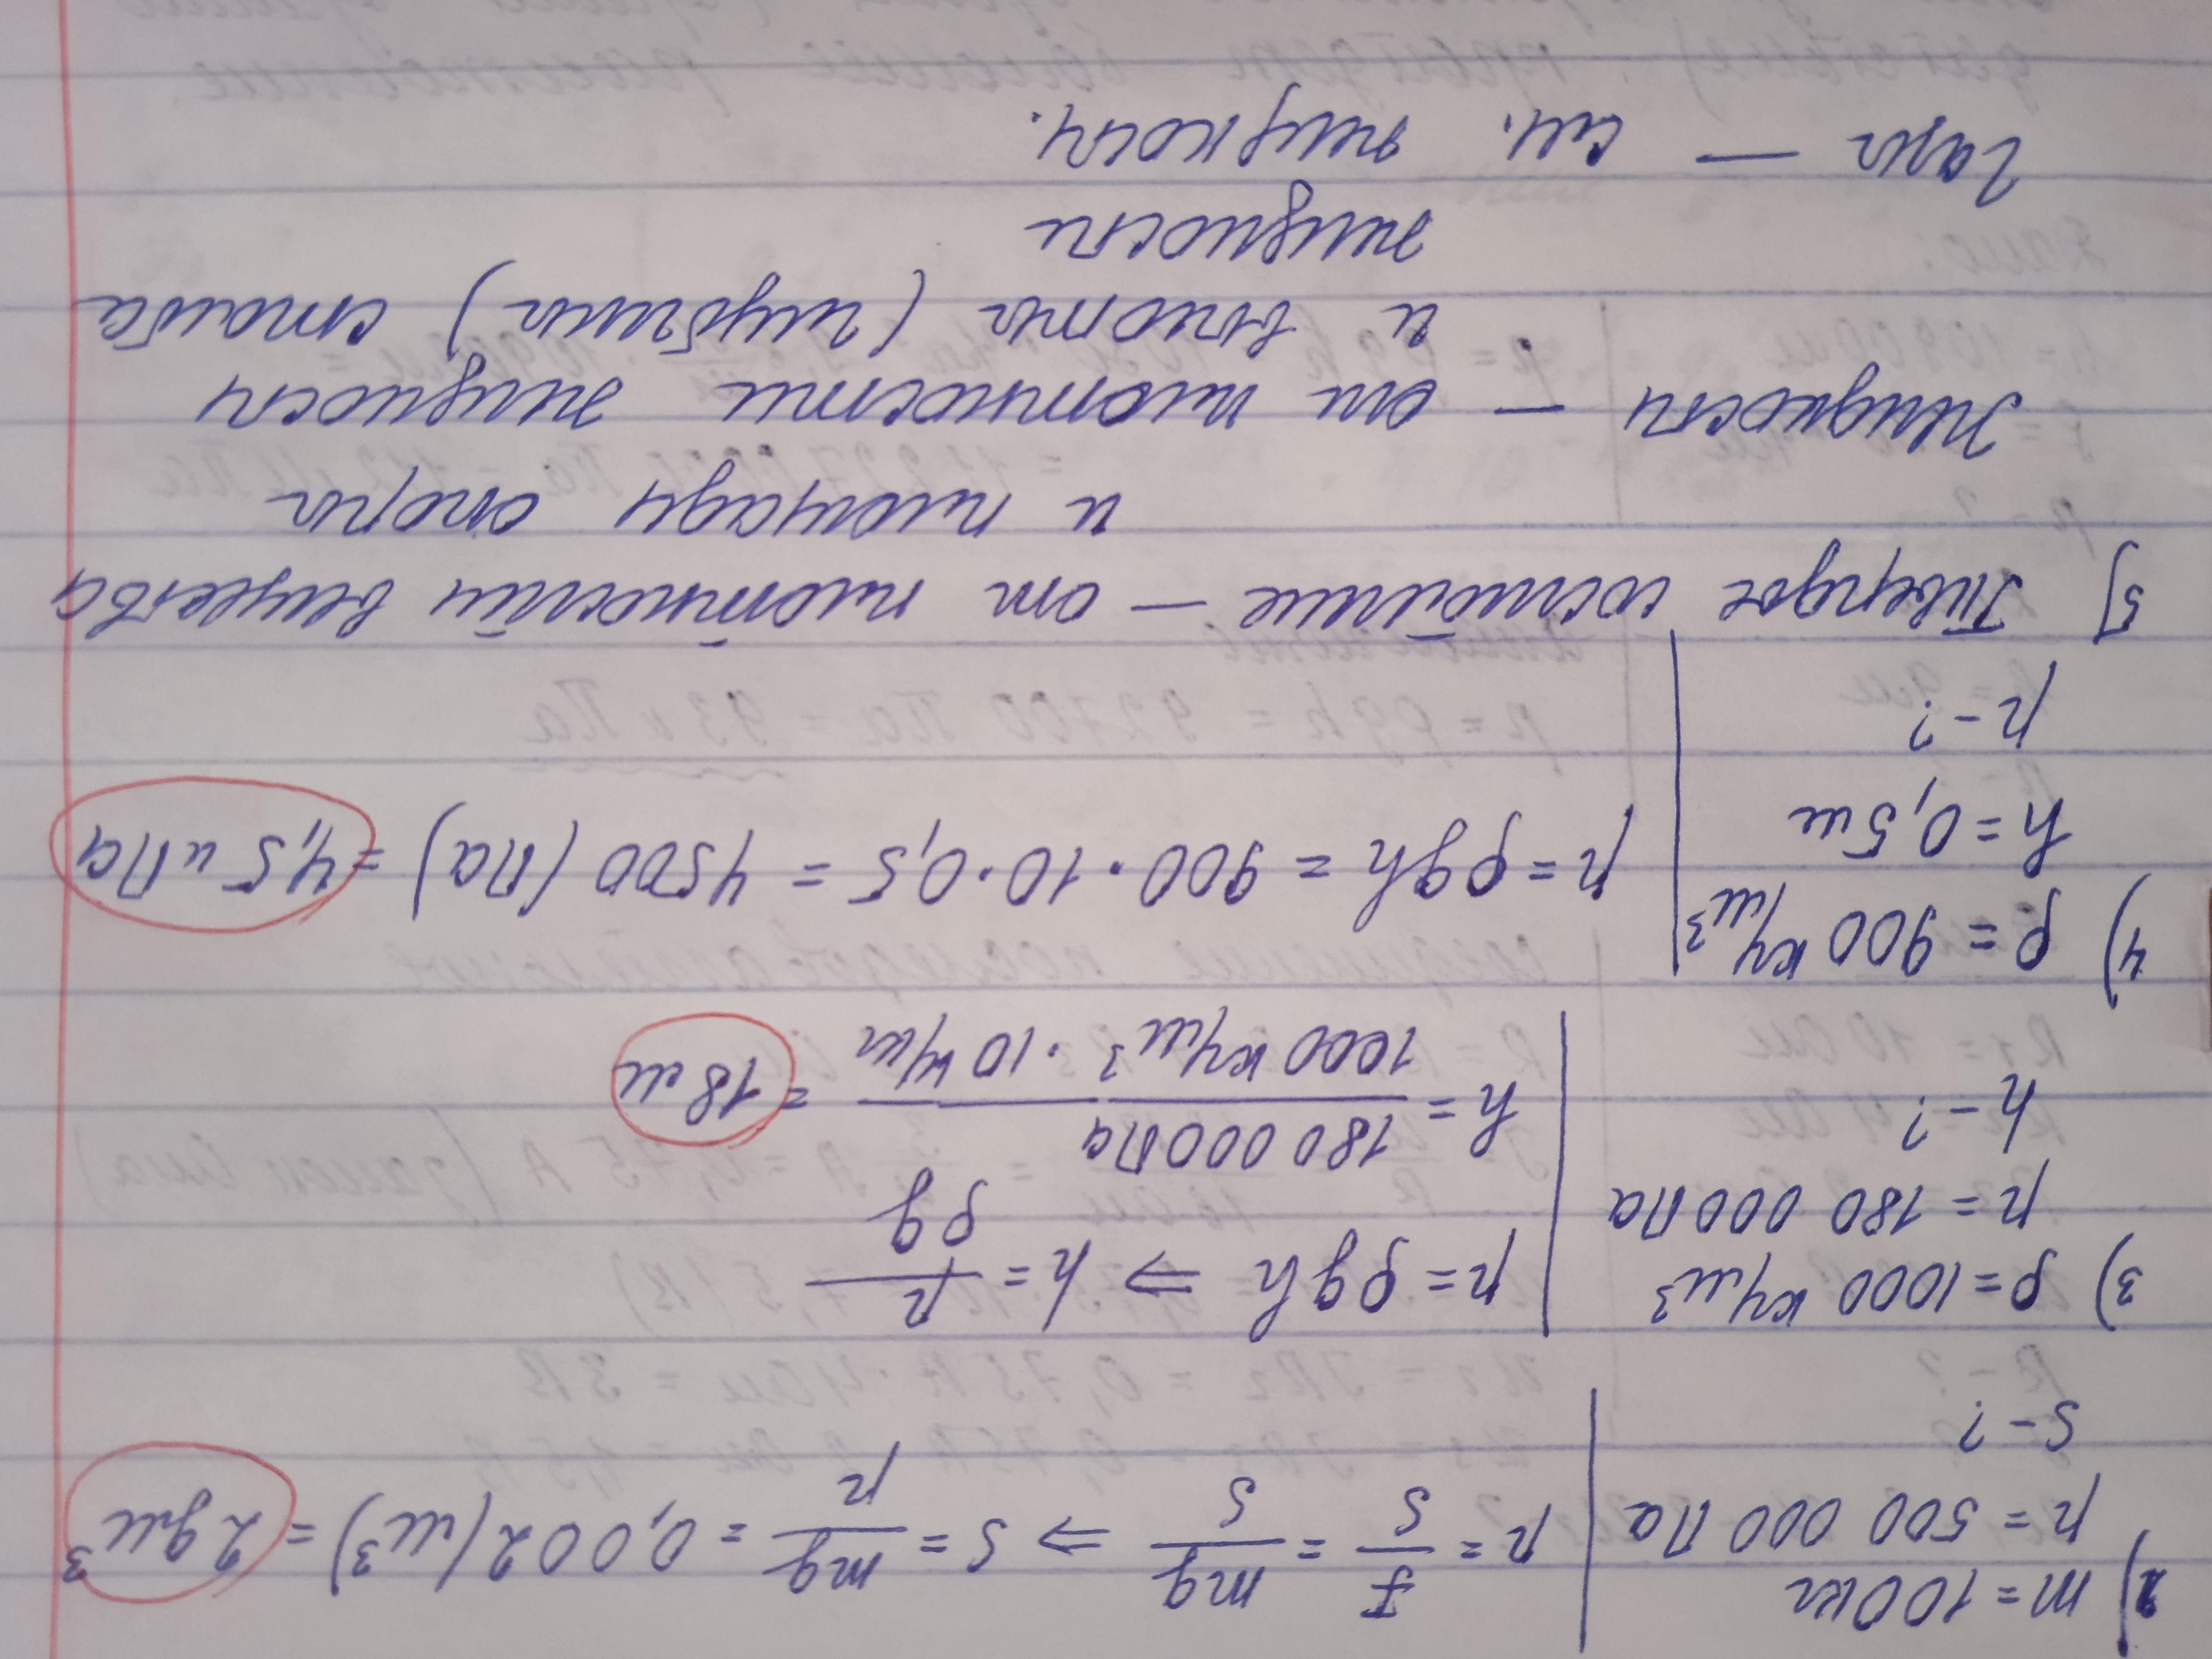 2) m = 100 кг
p = 500 000 Па
S - ?
p = F/S = mg/S ⇒ S = mg/p = 0,002 (м³) = 2 дм³
3) ρ = 1000 кг/м³
p = 180 000 Па
h - ?
p = ρgh ⇒ h = p/ρg
h = 180 000 Па / 1000 кг/м³ · 10 Н/кг = 18 м
4) ρ = 900 кг/м³
h = 0,5 м
p - ?
p = ρgh = 900 · 10 · 0,5 = 4500 (Па) = 4,5 кПа
5) Твердое состояние — от плотности вещества
и площади опоры
Жидкость — от плотности жидкости
и высота (глубина) столба
жидкости
Газы — см. жидкость.